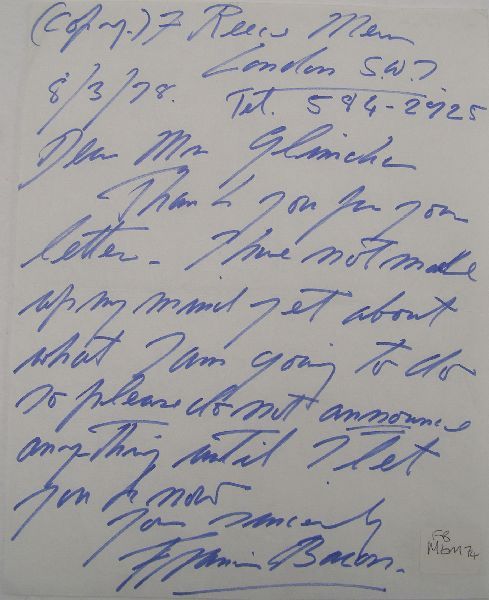 (Copy.) 7 Reece Mews
London SW.7
8/3/78. Tel. 584-2925
Dear Mr Glimcher
Thank you for your
letter - I have not made
up my mind yet about
what I am going to do
so please do not announce
anything until I let
you know
Yours sincerely
Francis Bacon.
FB